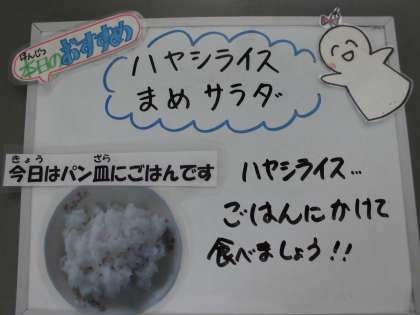 ほんじつ
本日のおすすめ
ハヤシライス
まめサラダ
きょう ざら
今日はパン皿にごはんです
ハヤシライス…
ごはんにかけて
食べましょう!!